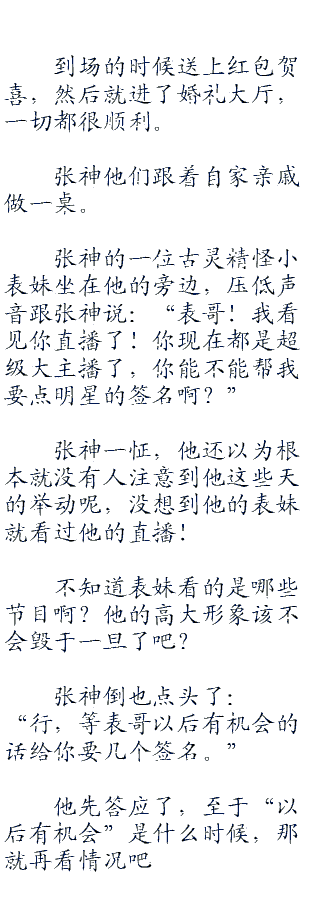 到场的时候送上红包贺
喜，然后就进了婚礼大厅，
一切都很顺利。
张神他们跟着自家亲戚
做一桌。
张神的一位古灵精怪小
表妹坐在他的旁边，压低声
音跟张神说：“表哥！我看
见你直播了！你现在都是超
级大主播了，你能不能帮我
要点明星的签名啊？”
张神一怔，他还以为根
本就没有人注意到他这些天
的举动呢，没想到他的表妹
就看过他的直播！
不知道表妹看的是哪些
节目啊？他的高大形象该不
会毁于一旦了吧？
张神倒也点头了：
“行，等表哥以后有机会的
话给你要几个签名。”
他先答应了，至于“以
后有机会”是什么时候，那
就再看情况吧